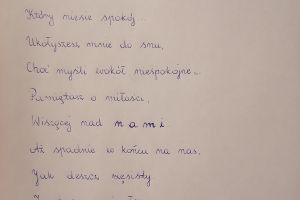 Który niesie spokój...
Ukołyszesz mnie do snu,
Choć myśli wokół niespokojne...
Pamiętasz o miłości,
Wiszącej nad nami
Aż spadnie w końcu na nas,
Jak deszcz rzęsisty